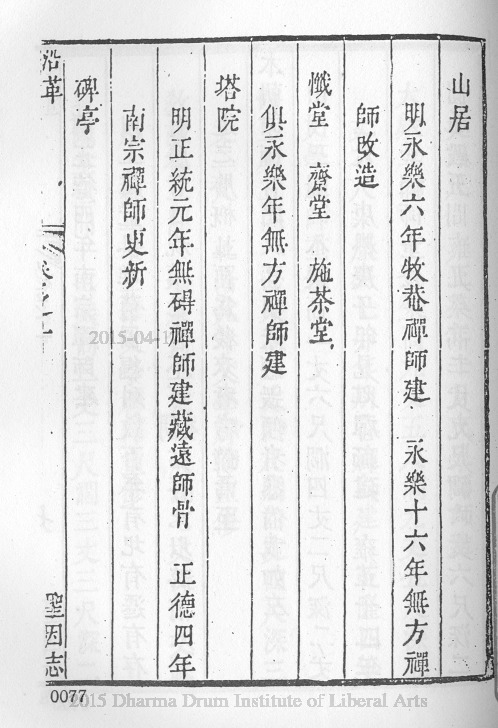 山居
明永樂六年牧菴禪師建 永樂十六年無方禪
師改造
懺堂 齋堂 施茶堂
俱永樂年無方禪師建
塔院
明正統元年無碍禪師建藏遠師骨 正德四年
南宗禪師更新
碑亭
沿革 卷之
聖因志
0077
2015-04-1
2015 Dharma Drum Institute of Liberal Arts